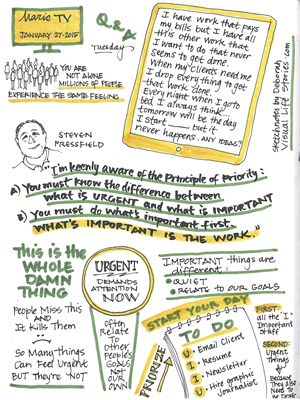 Marie TV
JANUARY 27-2015
Q & A
Tuesday
I have work that pays
my bills but I have all
this other work that
I want to do that never
seems to get done.
When my clients need me
I drop everything to get
that work done.
Every night when I go to
bed, I always think...
tomorrow will be the day
I start ...... but it
never happens. ANY IDEAS?
sketchnotes by Deborah
Visual Life Stories.com
YOU ARE
NOT ALONE
MILLIONS OF PEOPLE
EXPERIENCE THE SAME FEELING
STEVEN
PRESSFIELD
"I'm keenly aware of the Principle of Priority:
A) You must know the difference between
what is URGENT and what is IMPORTANT
B) You must do what's important first.
WHAT'S IMPORTANT IS THE WORK."
This is the
WHOLE
DAMN
THING
People Miss This
and
It Kills Them
So Many Things
Can Feel Urgent
BUT They're NOT
URGENT
DEMANDS
ATTENTION
NOW
Often
Relate
to
Other
People's
GOALS
Not
OUR
OWN
IMPORTANT things are
different:
QUIET
RELATE TO OUR GOALS
START YOUR DAY
TO DO
U - Email Client
I - Resume
I - Newsletter
U - Hire graphic
Journalist
PRIORITIZE
FIRST:
all the "I"
Important
Stuff
SECOND:
Urgent
Things
Because
They also
Need to
be Done